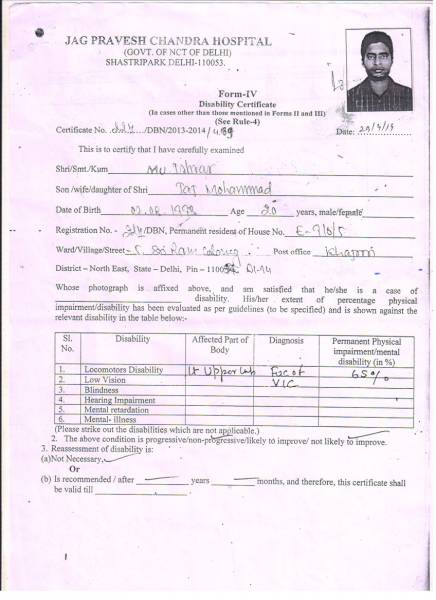 JAG PRAVESH CHANDRA HOSPITAL
(GOVT. OF NCT OF DELHI)
SHASTRIPARK DELHI-110053.
Form-IV
Disability Certificate
(In cases other than those mentioned in Forms II and III)
(See Rule-4)
Certificate No. /DBN/2013-2014/
Date:
This is to certify that I have carefully examined
Shri/Smt./Kum
Son/wife/daughter of Shri Mohammad
Date of Birth Age 20 years, male/female
Registration No. - /DBN, Permanent resident of House No. E-
Ward/Village/Street- Post office Khajori
District – North East, State – Delhi, Pin – 1100
Whose photograph is affixed above, and am satisfied that he/she is a case of
disability. His/her extent of percentage physical
impairment/disability has been evaluated as per guidelines (to be specified) and is shown against the
relevant disability in the table below:-
Sl. No. Disability Affected Part of Body Diagnosis Permanent Physical impairment/mental disability (in %)
1. Locomotors Disability Lt Upper 65%
2. Low Vision VIC
3. Blindness
4. Hearing Impairment
5. Mental retardation
6. Mental- illness
(Please strike out the disabilities which are not applicable.)
2. The above condition is progressive/non-progressive/likely to improve/ not likely to improve.
3. Reassessment of disability is:
(a)Not Necessary,
Or
(b) Is recommended / after years months, and therefore, this certificate shall
be valid till